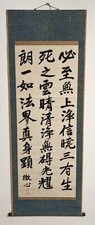 必至無上淨信暁三有生
死之雲晴清淨無碍光耀
朗一如法界真身顕